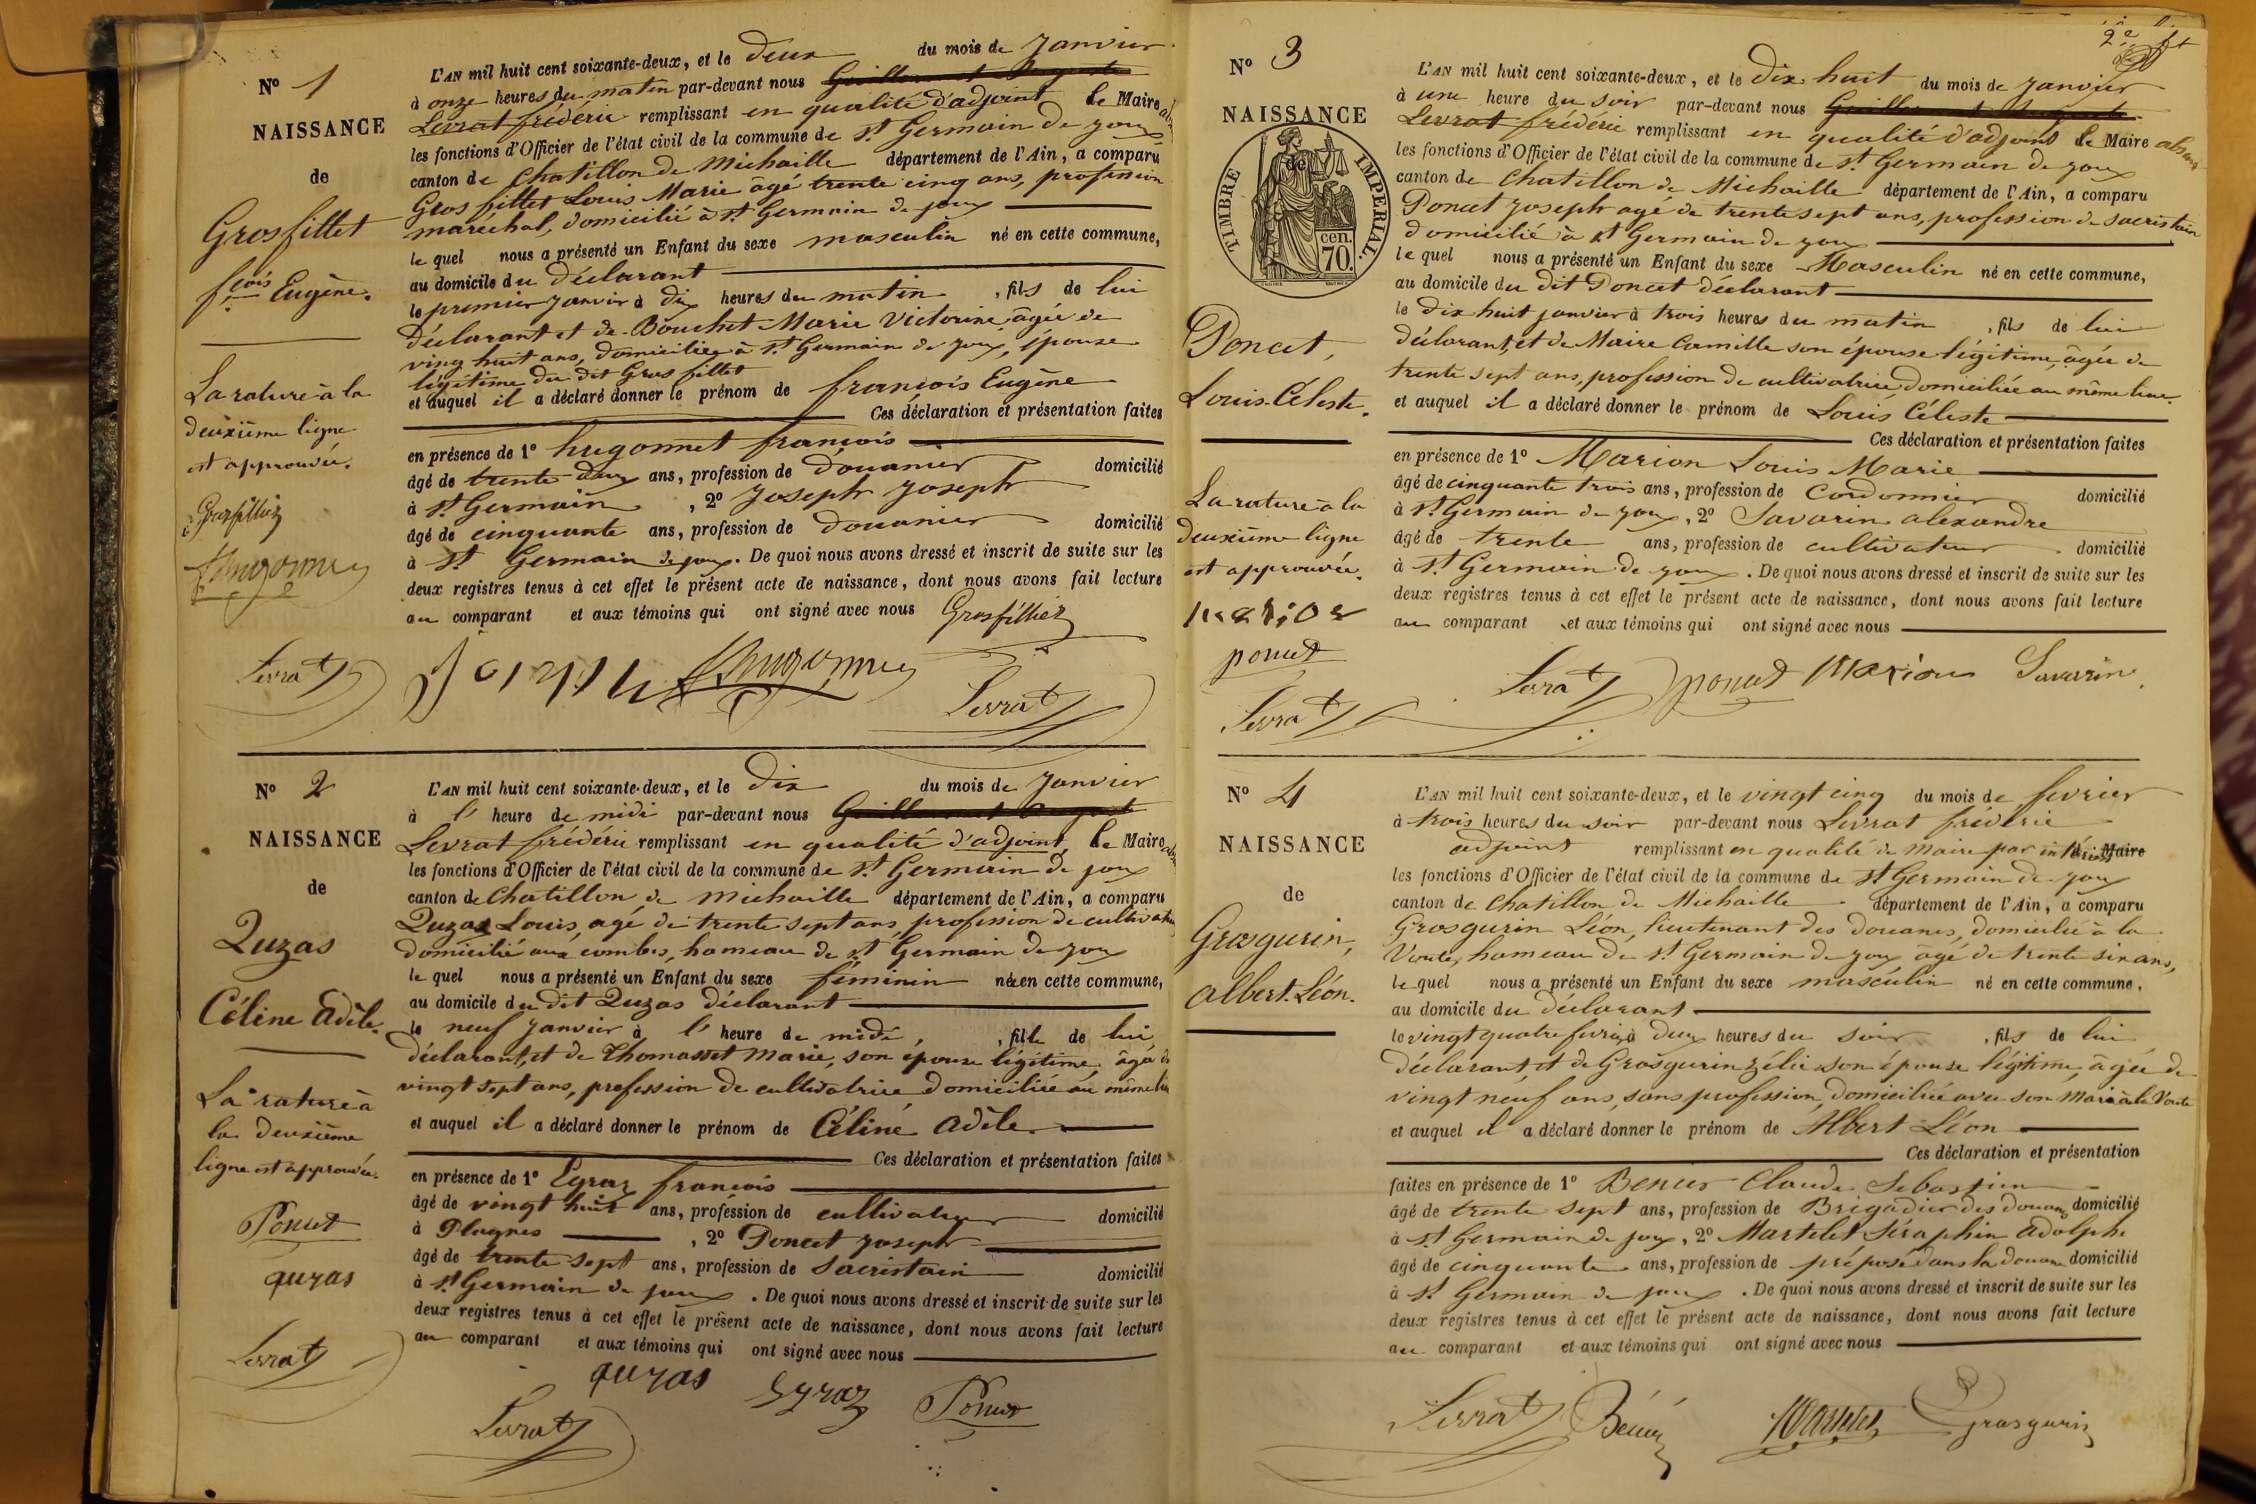 N° 1
NAISSANCE
de
Grosfillet
f.çois Eugène.
La rature à la
deuxième ligne
est approuvée.
Grosfilliez
Hugonnet
Levrat
L'AN mil huit cent soixante-deux, et le deux du mois de Janvier
à onze heures du matin par-devant nous Guillermet Auguste
Levrat frédéric remplissant en qualité d'adjoint le Maire
les fonctions d'Officier de l'état civil de la commune de St Germain de joux
canton de Chatillon de Michaille département de l'Ain, a comparu
Gros fillet Louis Marie âgé trente cinq ans, profession
maréchal, domicilié à St Germain de joux
le quel nous a présenté un Enfant du sexe masculin né en cette commune,
au domicile du déclarant
le premier janvier à dix heures du matin, fils de lui
déclarant et de Bouchet Marie Victorine âgée de
ving huit ans, domiciliée à St Germain de joux, épouse
légitime du dit Gros fillet
et auquel il a déclaré donner le prénom de françois Eugène
Ces déclaration et présentation faites
en présence de 1° hugonnet françois
âgé de trente deux ans, profession de douanier domicilié
à St Germain, 2° Joseph Joseph
âgé de cinquante ans, profession de douanier domicilié
à St Germain de joux. De quoi nous avons dressé et inscrit de suite sur les
deux registres tenus à cet effet le présent acte de naissance, dont nous avons fait lecture
au comparant et aux témoins qui ont signé avec nous Grosfilliez
Joseph Hugonnet
Levrat
N° 2
NAISSANCE
de
Quzas
Céline Adèle.
La rature à
la deuxième
ligne est approuvée.
Poncet
quzas
Levrat
L'AN mil huit cent soixante-deux, et le dix du mois de Janvier
à l' heure de midi par-devant nous Guillermet Auguste
Levrat frédéric remplissant en qualité d'adjoint, le Maire
les fonctions d'Officier de l'état civil de la commune de St Germain de joux
canton de Chatillon de michaille département de l'Ain, a comparu
Quzas Louis, agé de trente sept ans, profession de cultivateur
domicilié aux combes, hameau de St Germain de joux
le quel nous a présenté un Enfant du sexe féminin née en cette commune,
au domicile du dit Quzas déclarant
le neuf Janvier à l' heure de midi, fille de lui
déclarant, et de Thomasset Marie, son épouse légitime, âgée de
vingt sept ans, profession de cultivatrice domiciliée au même lieu
et auquel il a déclaré donner le prénom de Céline Adèle.
Ces déclaration et présentation faites
en présence de 1° Egraz françois
âgé de vingt huit ans, profession de cultivateur domicilié
à Plagnes, 2° Poncet Joseph
âgé de trente sept ans, profession de Sacristain domicilié
à St Germain de joux. De quoi nous avons dressé et inscrit de suite sur les
deux registres tenus à cet effet le présent acte de naissance, dont nous avons fait lecture
au comparant et aux témoins qui ont signé avec nous
quzas Egraz Poncet
Levrat
2e ft
N° 3
NAISSANCE
de
TIMBRE IMPERIAL.
cen.
70.
Poncet,
Louis Céleste.
La rature à la
deuxième ligne
est approuvée.
Marion
poncet
Levrat
L'AN mil huit cent soixante-deux, et le dix huit du mois de janvier
à une heure du soir par-devant nous Guillermet Auguste
Levrat frédéric remplissant en qualité d'adjoint le Maire absent
les fonctions d'Officier de l'état civil de la commune de St Germain de joux
canton de Chatillon de Michaille département de l'Ain, a comparu
Poncet Joseph agé de trente sept ans, profession de sacristain
domicilié à St Germain de joux
le quel nous a présenté un Enfant du sexe Masculin né en cette commune,
au domicile du dit Poncet déclarant
le dix huit janvier à trois heures du matin, fils de lui
déclarant, et de Maire Camille son épouse légitime, âgée de
trente sept ans, profession de cultivatrice domiciliée au même lieu.
et auquel il a déclaré donner le prénom de Louis Céleste
Ces déclaration et présentation faites
en présence de 1° Marion Louis Marie
âgé de cinquante trois ans, profession de Cordonnier domicilié
à St Germain de joux, 2° Savarin alexandre
âgé de trente ans, profession de cultivateur domicilié
à St Germain de joux. De quoi nous avons dressé et inscrit de suite sur les
deux registres tenus à cet effet le présent acte de naissance, dont nous avons fait lecture
au comparant et aux témoins qui ont signé avec nous
Levrat poncet Marion Savarin
N° 4
NAISSANCE
de
Grosgurin,
Albert Léon.
L'AN mil huit cent soixante-deux, et le vingt cinq du mois de fevrier
à trois heures du soir par-devant nous Levrat fréderic
adjoint remplissant en qualité de Maire par intérim le Maire
les fonctions d'Officier de l'état civil de la commune de St Germain de joux
canton de Chatillon de Michaille département de l'Ain, a comparu
Grosgurin Léon, lieutenant des douanes, domicilié à la
Voute, hameau de St Germain de joux âgé de trente six ans,
le quel nous a présenté un Enfant du sexe masculin né en cette commune,
au domicile du déclarant
le vingt quatre fevrier à deux heures du soir, fils de lui
déclarant, et de Grosgurin Zélie son épouse légitime, âgée de
vingt neuf ans, sans profession, domiciliée avec son Mari à la Voute
et auquel il a déclaré donner le prénom de Albert Léon
Ces déclaration et présentation
faites en présence de 1° Benier Claude Sebastien
âgé de trente sept ans, profession de Brigadier des douanes domicilié
à St Germain de joux, 2° Martelet Séraphin Adolphe
âgé de cinquante ans, profession de préposé dans la douane domicilié
à St Germain de joux. De quoi nous avons dressé et inscrit de suite sur les
deux registres tenus à cet effet le présent acte de naissance, dont nous avons fait lecture
au comparant et aux témoins qui ont signé avec nous
Levrat Benier Martelet Grosgurin